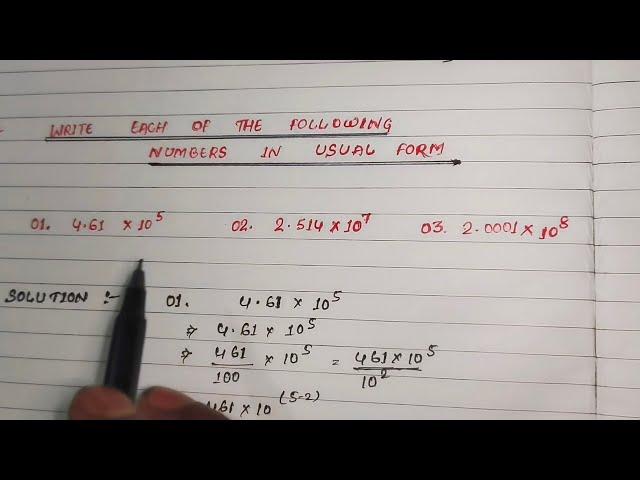 WRITE EACH OF THE FOLLOWING
NUMBERS IN USUAL FORM
01. 4.61 × 10⁵ 02. 2.514 × 10⁷ 03. 2.0001 × 10⁸
SOLUTION :- 01. 4.61 × 10⁵
⇒ 4.61 × 10⁵
⇒ 461/100 × 10⁵ = 461 × 10⁵/10²
461 × 10⁽⁵⁻²⁾